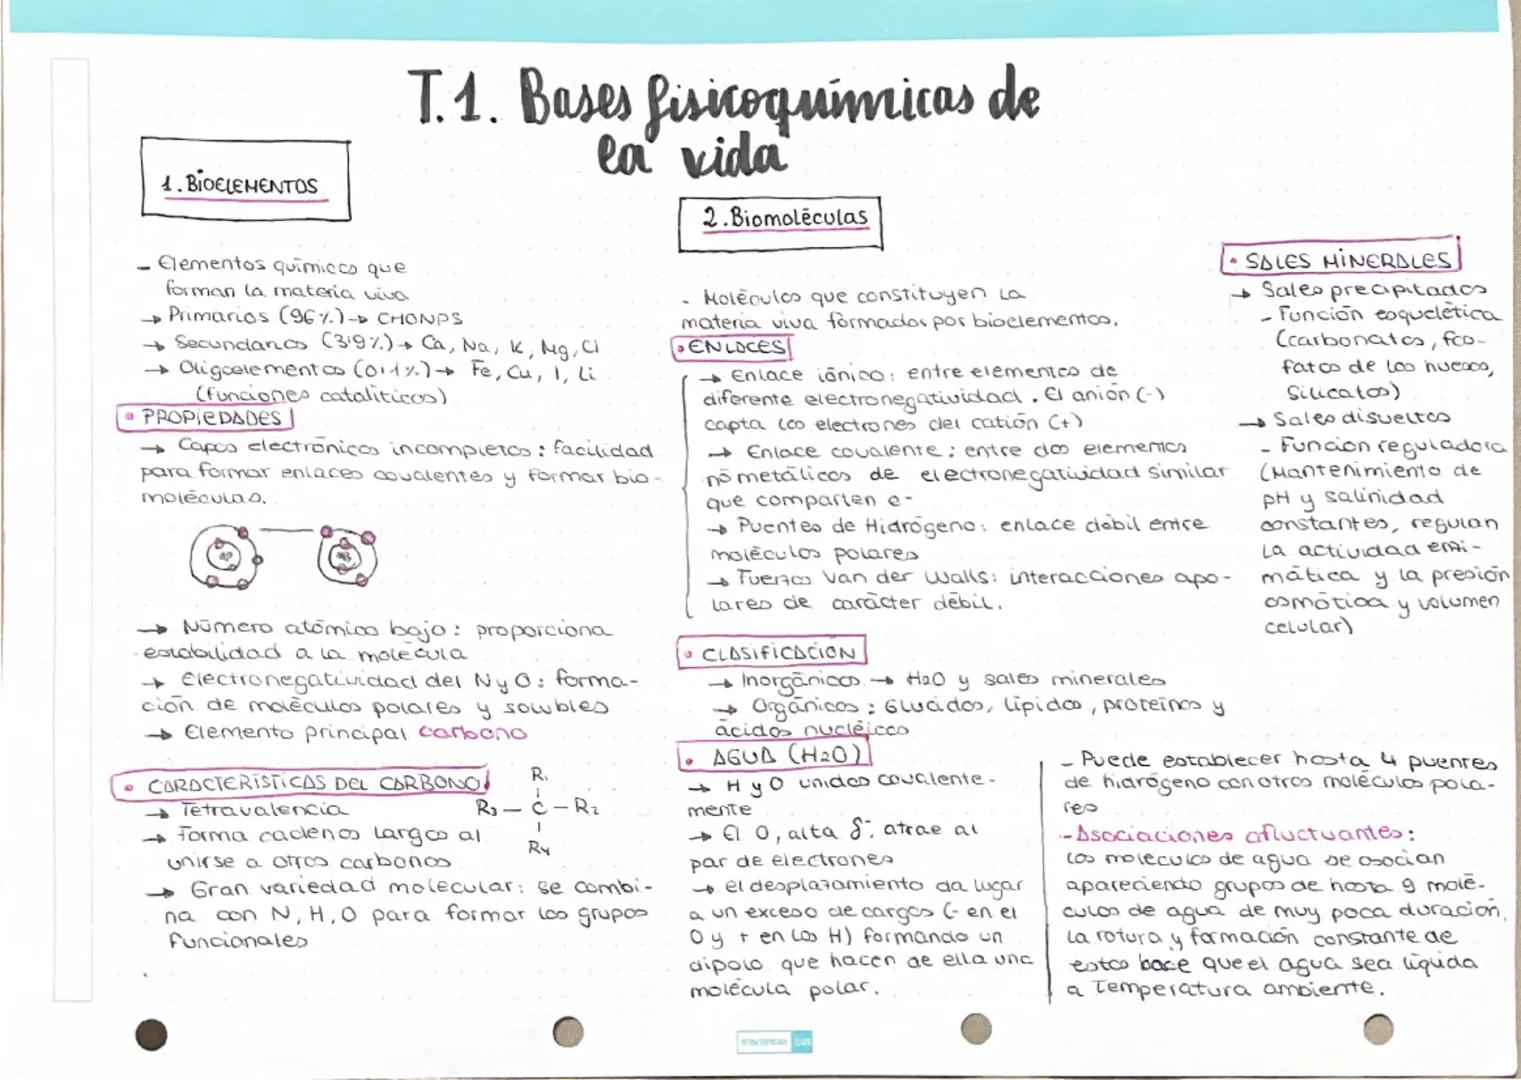 T.1. Bases fisicoquímicas de
la vida
1. BIOELEMENTOS
- Elementos químicos que
forman la materia viva
→ Primarios (96%) → CHONPS
→ Secundarios (3'9%) → Ca, Na, K, Mg, Cl
→ Oligoelementos (0'1%) → Fe, Cu, I, Li
(funciones catalíticas)
• PROPIEDADES
→ Capas electrónicas incompletas: facilidad
para formar enlaces covalentes y formar bio-
moléculas.
→ Número atómico bajo: proporciona
estabilidad a la molécula
→ Electronegatividad del N y O: forma-
ción de moléculas polares y solubles
→ Elemento principal carbono
• CARACTERÍSTICAS DEL CARBONO
→ Tetravalencia
→ Forma cadenas largas al
unirse a otros carbonos
→ Gran variedad molecular: se combi-
na con N, H, O para formar los grupos
funcionales
R1
R3 - C - R2
R4
2. Biomoléculas
- Moléculas que constituyen la
materia viva formadas por bioelementos.
• ENLACES
→ Enlace iónico: entre elementos de
diferente electronegatividad. El anión (-)
capta los electrones del catión (+)
→ Enlace covalente: entre dos elementos
no metálicos de electronegatividad similar
que comparten e-
→ Puentes de Hidrógeno: enlace débil entre
moléculas polares
→ Fuerzas Van der Walls: interacciones apo-
lares de carácter débil.
• CLASIFICACIÓN
→ Inorgánicas → H2O y sales minerales
→ Orgánicas: Glúcidos, lípidos, proteínas y
ácidos nucléicos
• AGUA (H2O)
→ H y O unidos covalente-
mente
→ El O, alta δ-, atrae al
par de electrones
→ el desplazamiento da lugar
a un exceso de cargas (- en el
O y + en los H) formando un
dipolo que hacen de ella una
molécula polar.
- Puede establecer hasta 4 puentes
de hidrógeno con otras moléculas pola-
res
- Asociaciones afluctuantes:
las moléculas de agua se asocian
apareciendo grupos de hasta 9 molé-
culas de agua de muy poca duración.
La rotura y formación constante de
estos hace que el agua sea líquida
a temperatura ambiente.
• SALES MINERALES
→ Sales precipitadas
- Función esquelética
(carbonatos, fos-
fatos de los huesos,
silicatos)
→ Sales disueltas
- Función reguladora
(Mantenimiento de
pH y salinidad
constantes, regulan
la actividad enzi-
mática y la presión
osmótica y volumen
celular)